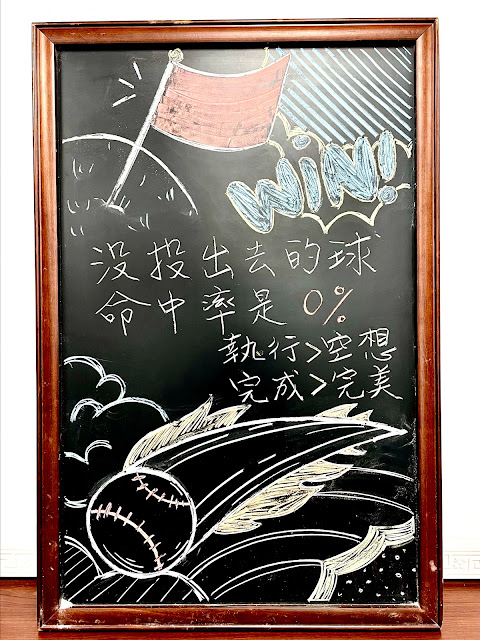 WiN!
没投出去的球
命中率是 0%
執行>空想
完成>完美